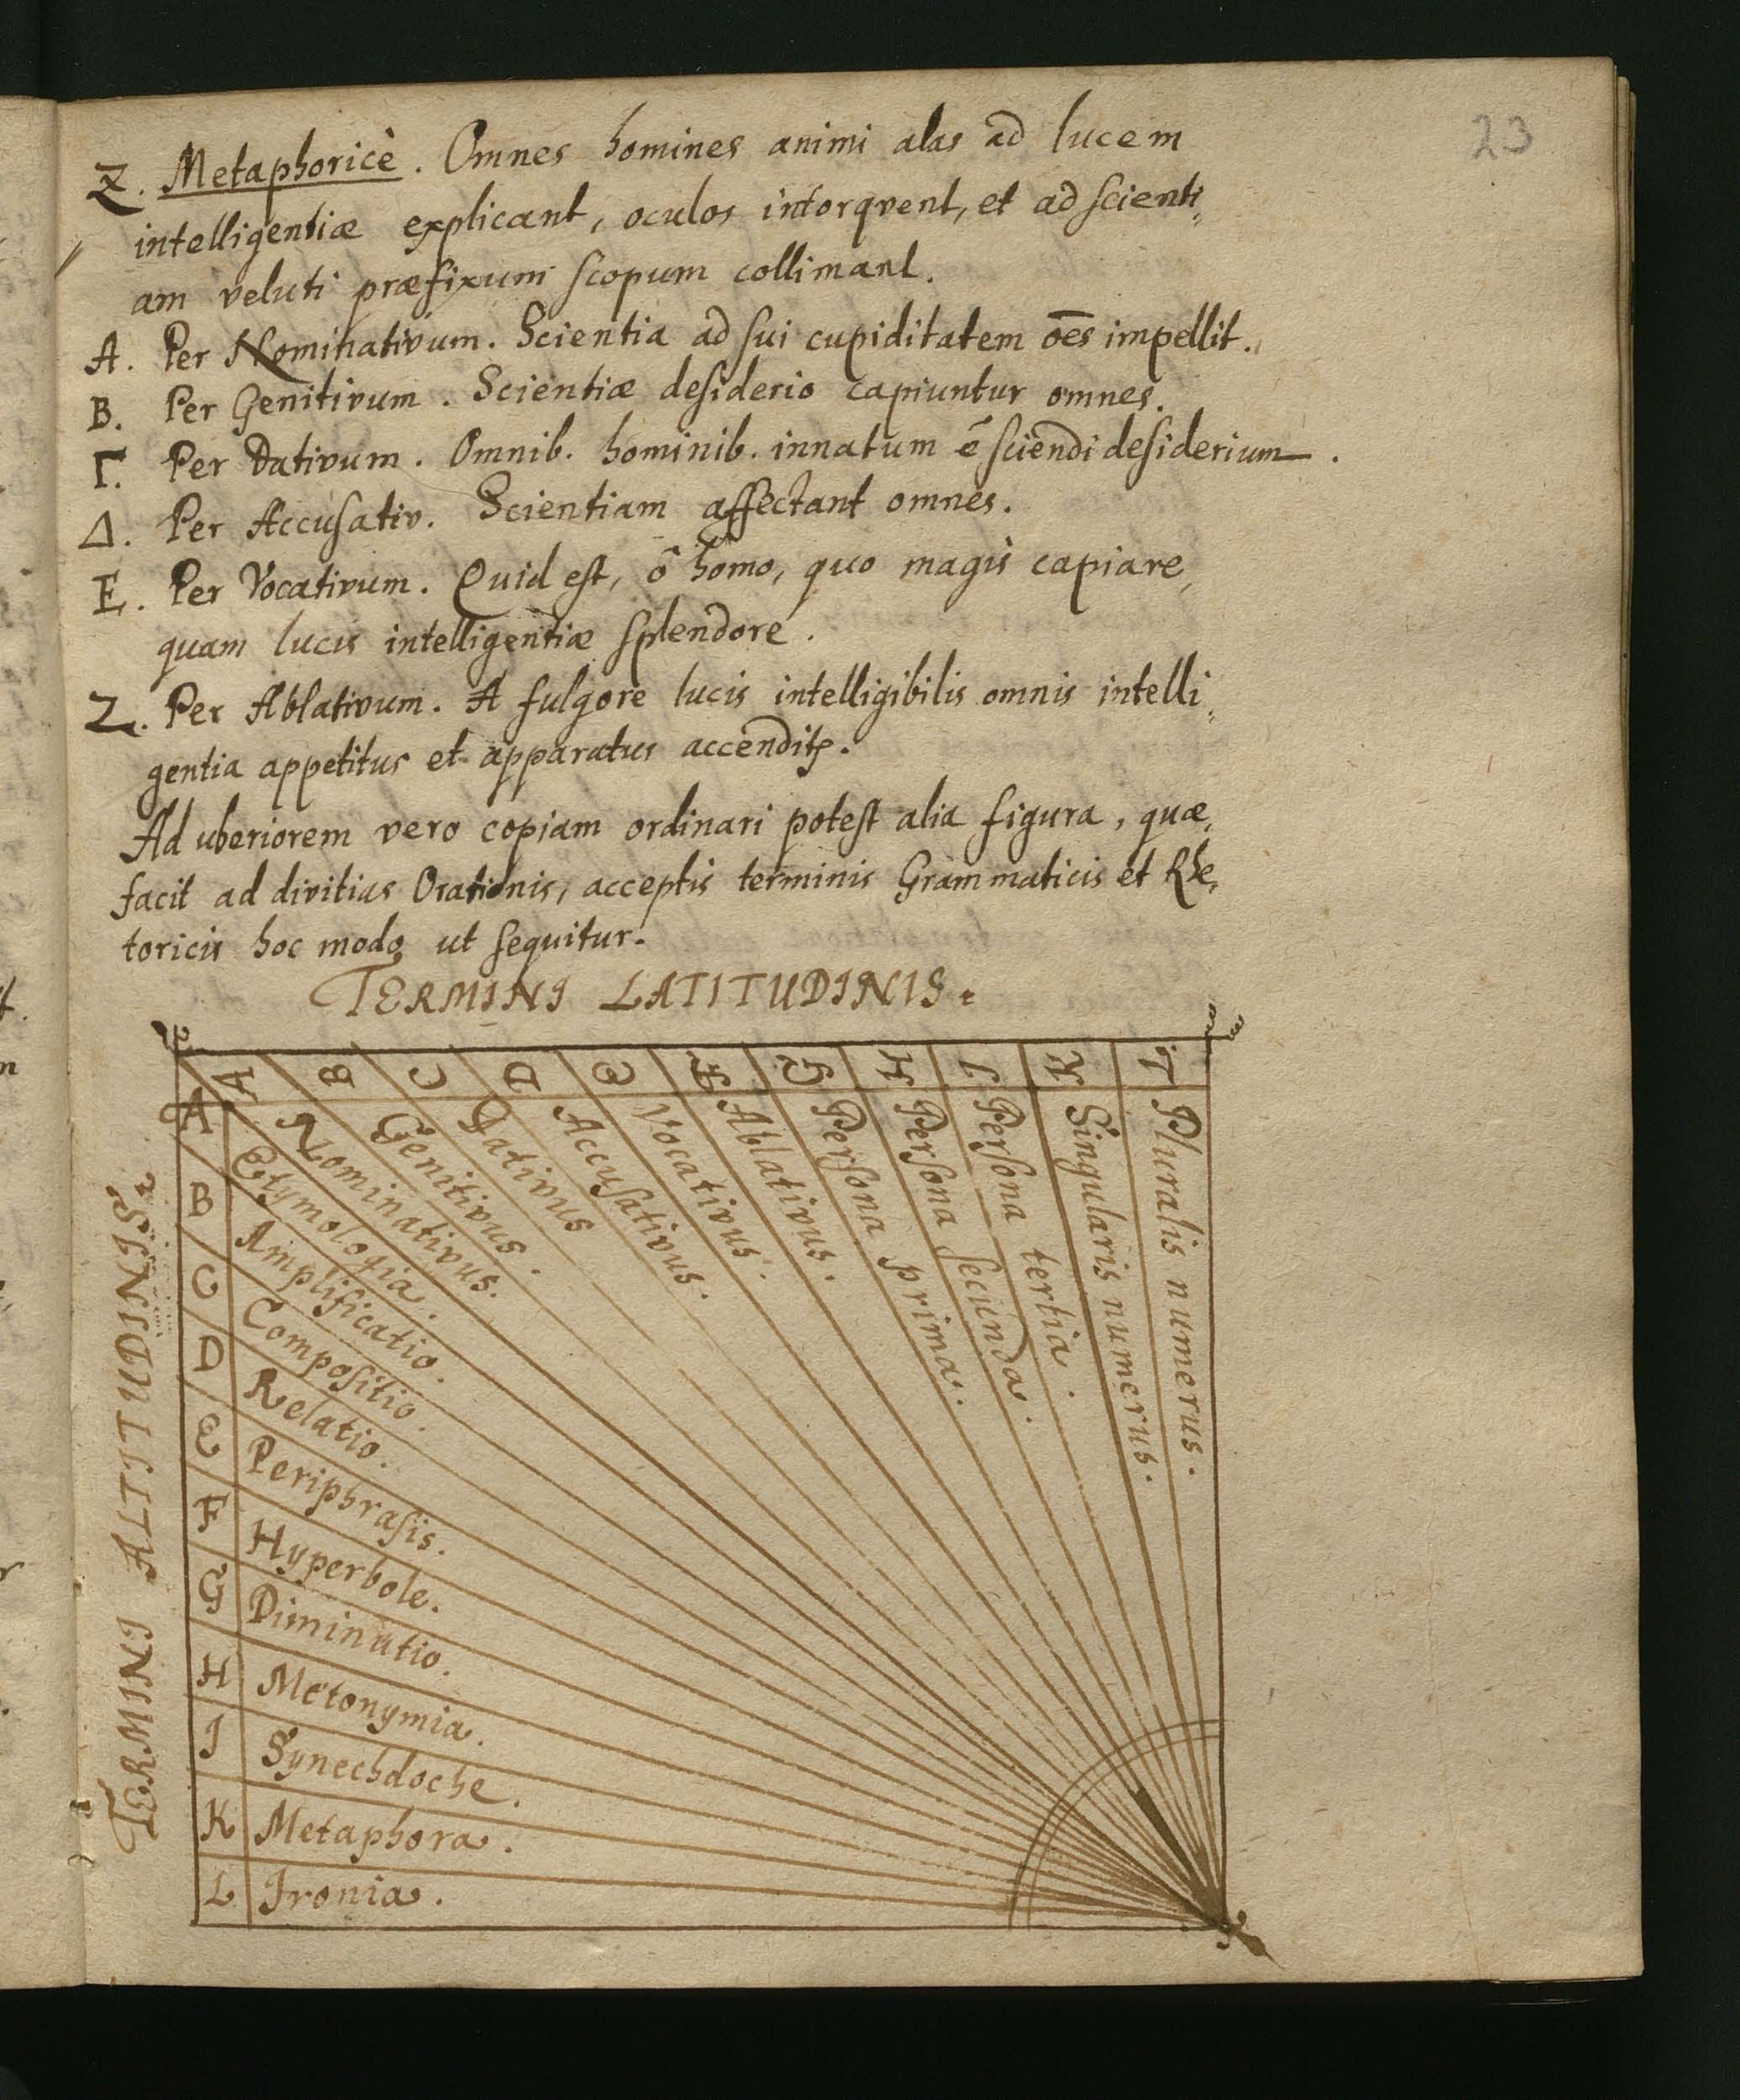 23
Z. Metaphoricè. Omnes homines animi alas ad lucem
intelligentiæ explicant, oculos intorqvent, et ad scienti,
am veluti præfixum scopum collimant.
A. Per Nominativum. Scientia ad sui cupiditatem oēs impellit.
B. Per Genitivum. Scientiæ desiderio capiuntur omnes.
Γ. Per Dativum. Omnib. hominib. innatum ē sciendi desiderium.
Δ. Per Accusativ. Scientiam affectant omnes.
E. Per Vocativum. Quid est, ô homo, quo magis capiare,
quam lucis intelligentiæ splendore.
Z. Per Ablativum. A fulgore lucis intelligibilis omnis intelli,
gentia appetitus et apparatus accenditꝛ.
Ad uberiorem vero copiam ordinari potest alia figura, quæ,
facit ad divitias Orationis, acceptis terminis Grammaticis et Rhe,
toricis hoc modo ut sequitur.
TERMINI LATITUDINIS.
A B C D E F G H I K L
Nominativus.
Genitivus.
Dativus
Accusativus.
Vocativus.
Ablativus.
Persona prima.
Persona secunda.
Persona tertia.
Singularis numerus.
Pluralis numerus.
TERMINI ALTITUDINIS.
A Etymologia.
B Amplificatio.
C Compositio.
D Relatio.
E Periphrasis.
F Hyperbole.
G Diminutio.
H Metonymia.
I Synechdoche.
K Metaphora.
L Ironia.